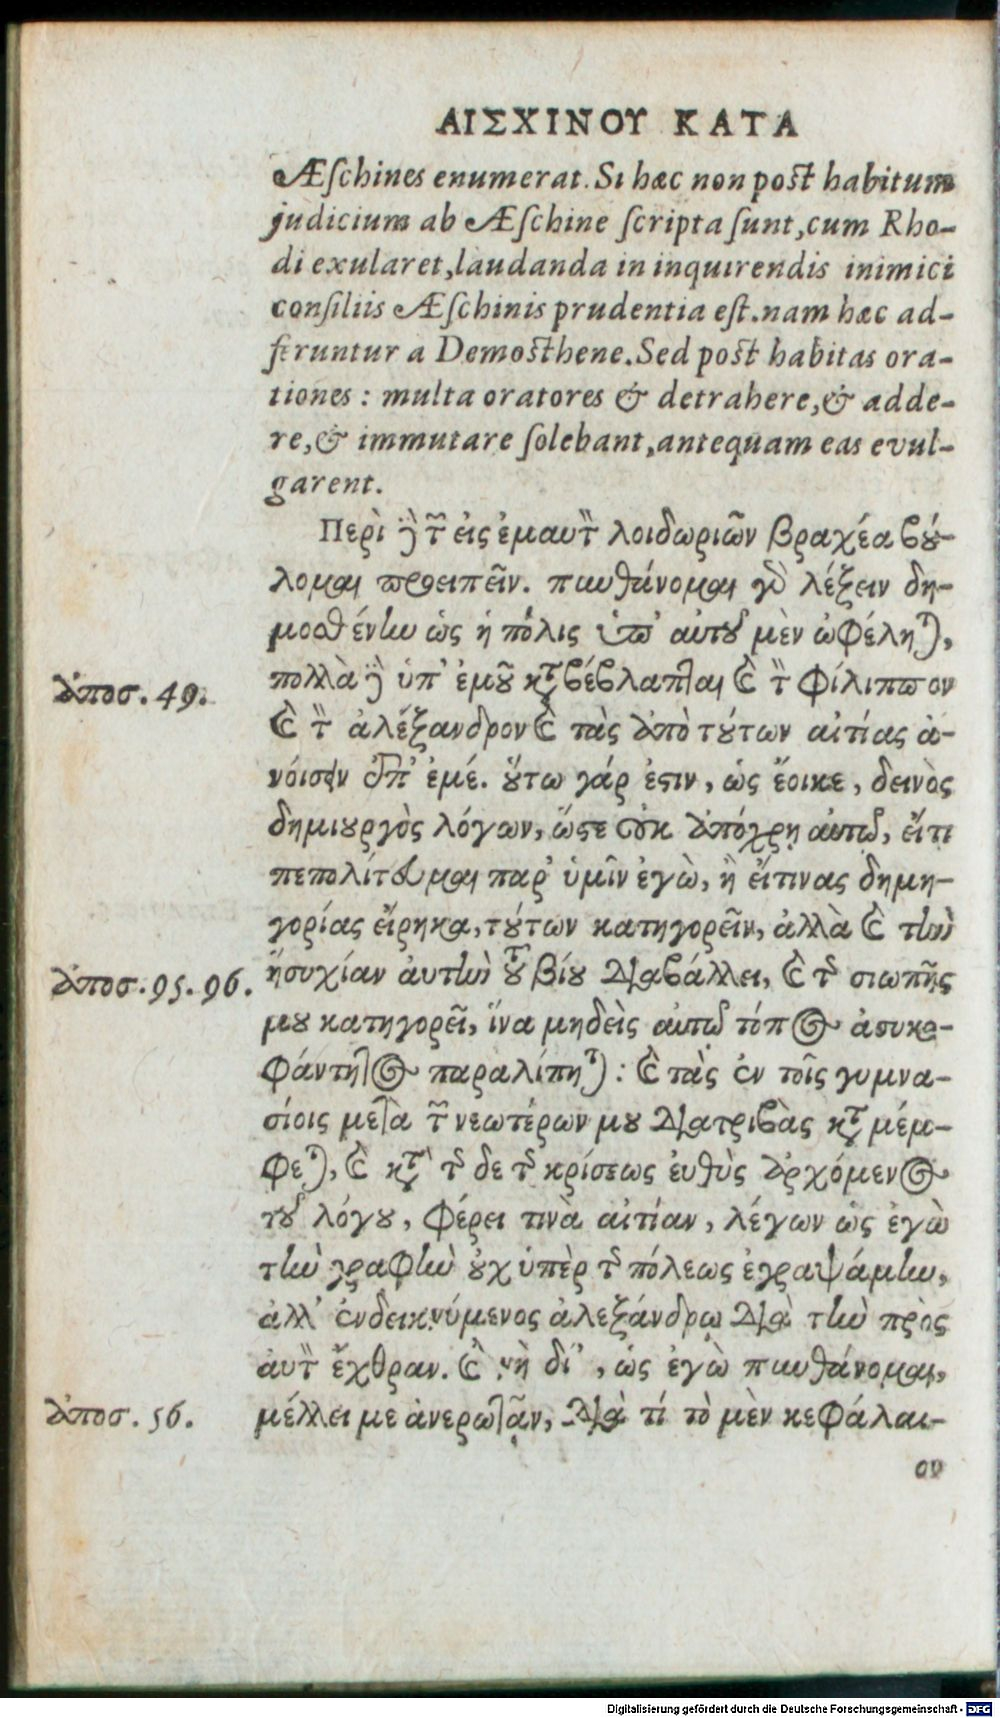 ΑΙΣΧΙΝΟΥ ΚΑΤΑ
Æſchines enumerat. Si hæc non poſt habitum
judicium ab Æſchine ſcripta ſunt, cum Rho-
di exularet, laudanda in inquirendis inimici
conſiliis Æſchinis prudentia eſt. nam hæc ad-
feruntur a Demoſthene. Sed poſt habitas ora-
tiones: multa oratores & detrahere, & adde-
re, & immutare ſolebant, antequam eas evul-
garent.
Περὶ δὲ τῶν εἰς ἐμαυτὸν λοιδωριῶν βραχέα βού-
λομαι προειπεῖν. πυνθάνομαι γὰρ λέξειν δη-
μοσθένην ὡς ἡ πόλις ὑπ' αὐτοῦ μὲν ὠφέληται,
πολλὰ δὲ ὑπ' ἐμοῦ καταβέβλαπται καὶ τὸν Φίλιππον
ἀποσ. 49.
καὶ τὸν ἀλέξανδρον καὶ τὰς ἀπὸ τούτων αἰτίας ἀ-
νοίσειν ἐπ' ἐμέ. οὕτω γάρ ἐστιν, ὡς ἔοικε, δεινὸς
δημιουργὸς λόγων, ὥστε οὐκ ἀπόχρη αὐτῷ, εἴ τι
πεπολίτευμαι παρ' ὑμῖν ἐγὼ, ἢ εἴ τινας δημη-
γορίας εἴρηκα, τούτων κατηγορεῖν, ἀλλὰ καὶ τὴν
ἡσυχίαν αὐτὴν τοῦ βίου διαβάλλει, καὶ τῆς σιωπῆς
ἀποσ. 95. 96.
μου κατηγορεῖ, ἵνα μηδεὶς αὐτῷ τόπος ἀσυκο-
φάντητος παραλίπηται: καὶ τὰς ἐν τοῖς γυμνα-
σίοις μετὰ τῶν νεωτέρων μου διατριβὰς καταμέμ-
φεται, καὶ κατὰ τῆς δε τῆς κρίσεως εὐθὺς ἀρχόμενος
τοῦ λόγου, φέρει τινὰ αἰτίαν, λέγων ὡς ἐγὼ
τὴν γραφὴν οὐχ ὑπὲρ τῆς πόλεως ἐγραψάμην,
ἀλλ' ἐνδεικνύμενος ἀλεξάνδρῳ διὰ τὴν πρὸς
αὐτὸν ἔχθραν. καὶ νὴ δί', ὡς ἐγὼ πυνθάνομαι,
μέλλει με ἀνερωτᾶν, διὰ τί τὸ μὲν κεφάλαι-
ἀποσ. 56.
ον
Digitalisierung gefördert durch die Deutsche Forschungsgemeinschaft - DFG